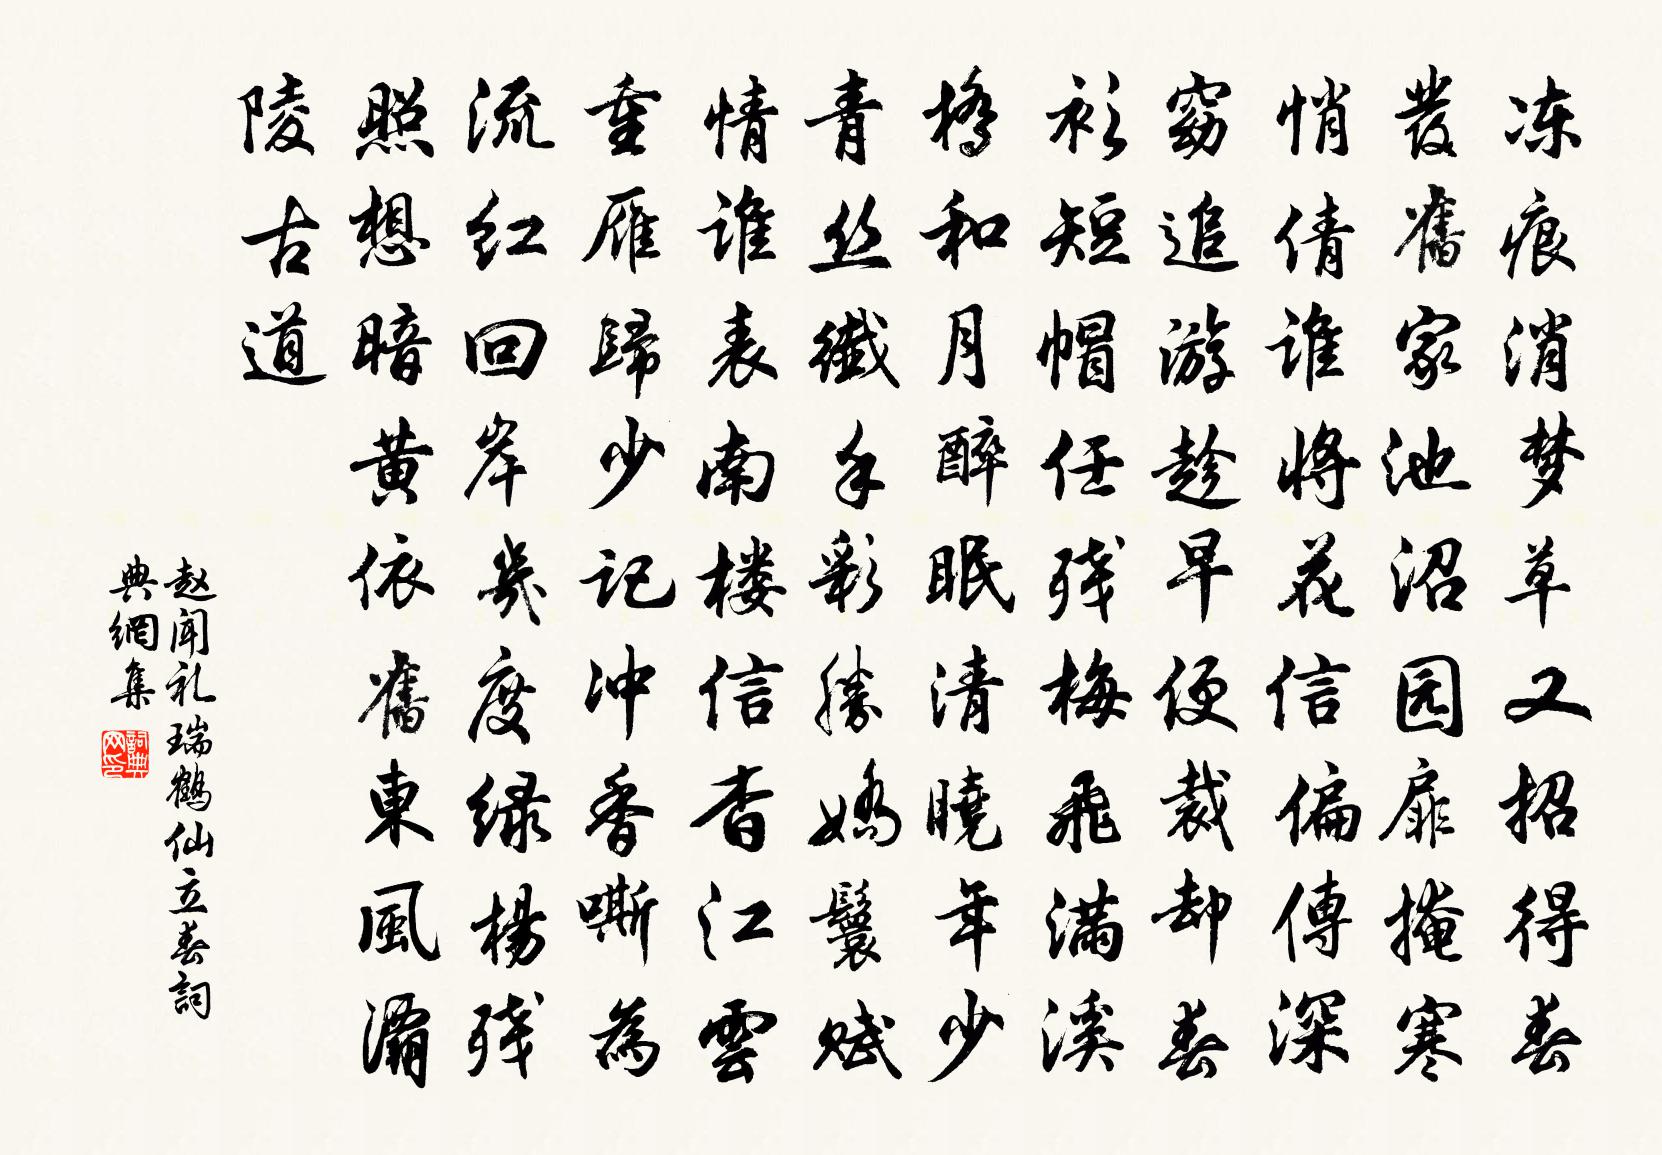 冻痕消梦草又招得春
發舊家池沼园扉掩寒
悄倩谁将花信偏傳深
窈追游趁早便裁却春
衫短帽任残梅飛满溪
橋和月醉眠清曉年少
青丝纖手彩勝嬌鬟赋
情谁表南楼信杳江雲
重雁歸少记冲香嘶為
流红回岸幾度绿楊残
照想暗黄依舊東風灞
陵古道
赵闻礼瑞鶴仙立春詞
典網集
詞典网印